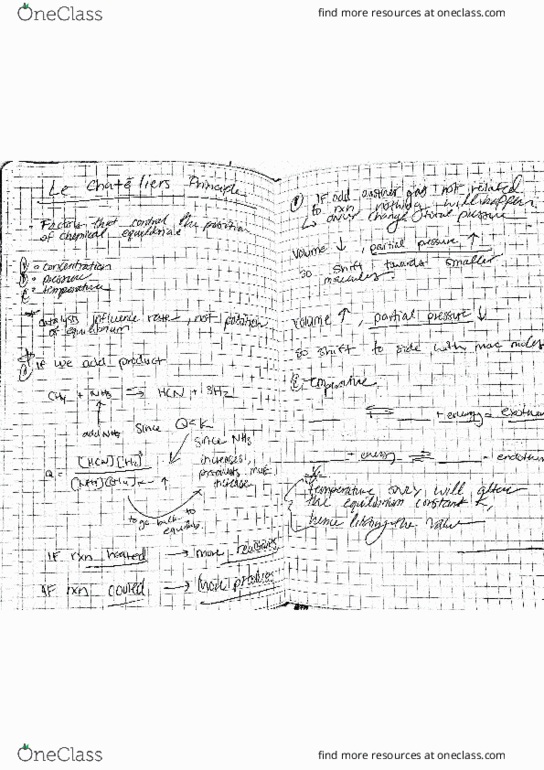 OneClass
find more resources at oneclass.com
Le Chatêliers Principle
Factors that control the position
of chemical equilibria
- concentration
- pressure
- temperature
* catalysts influence rate, not position
of equilibrium
if we add product
CH4 + NH3 ⇌ HCN + 3H2
add NH3 since Q<K
since NH3
increases,
products must
increase
Q = [HCN][H2]
[NH3][CH4] ↑
to go back to
IF rxn heated → more
IF rxn cooled → more products
IF add another gas not related
to rxn, nothing will happen
↳ doesn't change partial pressure
Volume ↓, partial pressure ↑
so shift towards smaller
molecules
Volume ↑, partial pressure ↓
so shift to side with more moles
temperature
⇌ + energy =
+ energy ⇌ =
temperature only will alter
the equilibrium constant K,
hence the value
OneClass
find more resources at oneclass.com